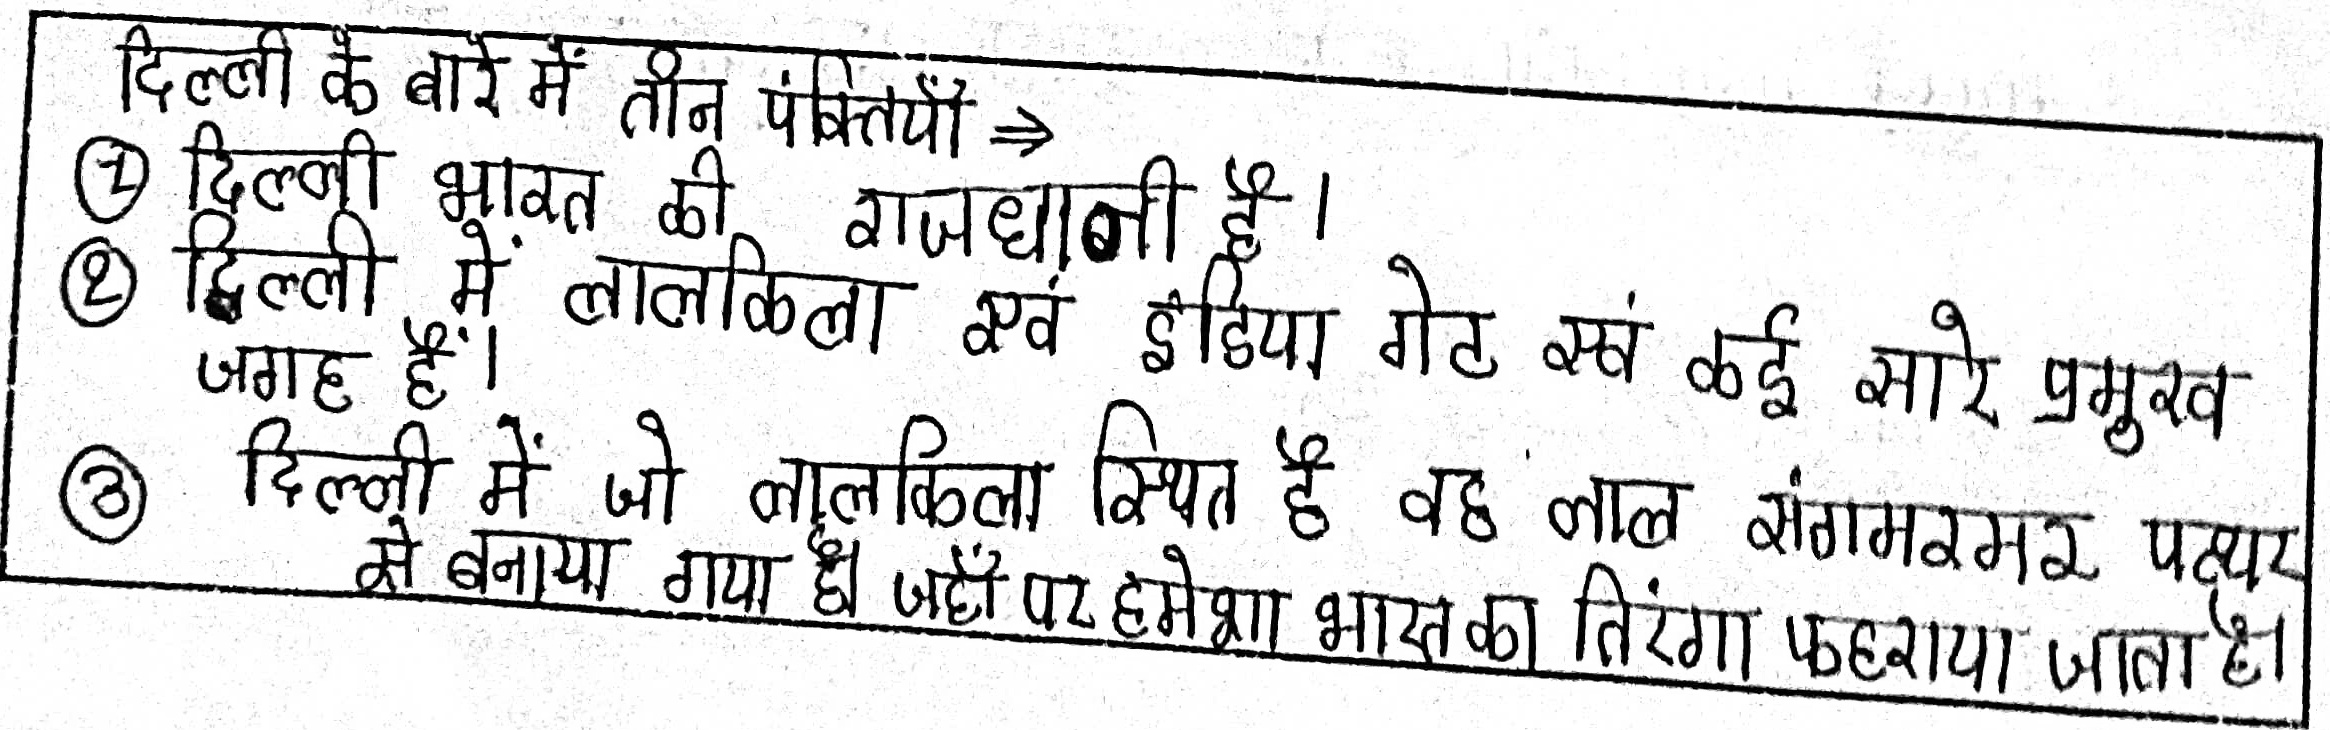 दिल्ली के बारे में तीन पंक्तियाँ ⇒
① दिल्ली भारत की राजधानी है।
② दिल्ली में लालकिला एवं इंडिया गेट एवं कई सारे प्रमुख
जगह हैं।
③ दिल्ली में जो लालकिला स्थित है वह लाल संगमरमर पत्थर
से बनाया गया है। जहाँ पर हमेशा भारत का तिरंगा फहराया जाता है।